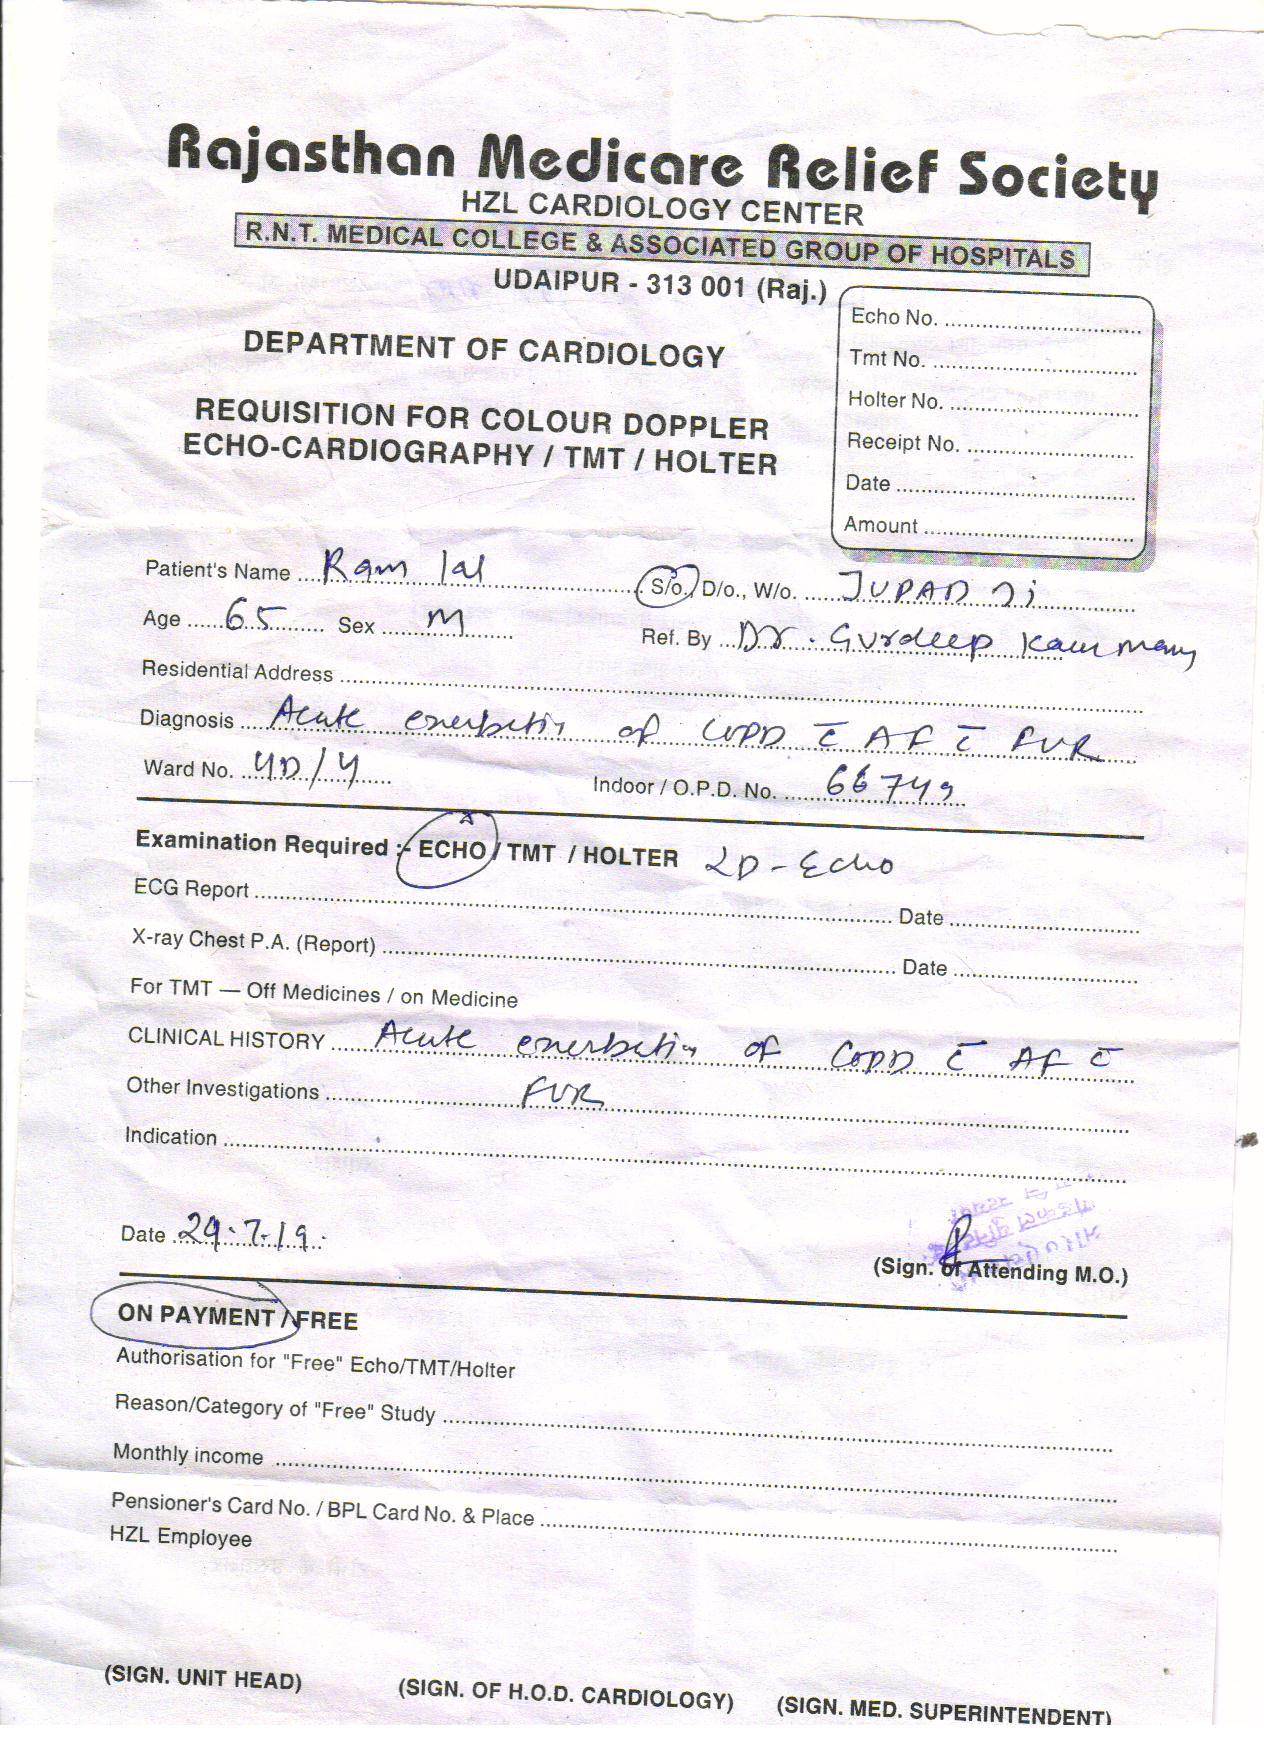 Rajasthan Medicare Relief Society
HZL CARDIOLOGY CENTER
R.N.T. MEDICAL COLLEGE & ASSOCIATED GROUP OF HOSPITALS
UDAIPUR - 313 001 (Raj.)
Echo No. ..........
Tmt No. ..........
Holter No. ..........
Receipt No. ..........
Date ..........
Amount ..........
DEPARTMENT OF CARDIOLOGY
REQUISITION FOR COLOUR DOPPLER
ECHO-CARDIOGRAPHY / TMT / HOLTER
Patient's Name .... Ram lal .......... S/o., D/o., W/o. ..... JUPAD Ji
Age ..... 65 ..... Sex ..... M ..... Ref. By ... Dr. Gurdeep Kaur
Residential Address ..........
Diagnosis .... Acute of COPD c̄ AF c̄ FVR
Ward No. .. 4D/4 ..... Indoor / O.P.D. No. ..... 66749
Examination Required :- ECHO / TMT / HOLTER 2D - Echo
ECG Report .......... Date ..........
X-ray Chest P.A. (Report) .......... Date ..........
For TMT — Off Medicines / on Medicine
CLINICAL HISTORY ..... Acute of COPD c̄ AF c̄
Other Investigations .......... FVR
Indication ..........
Date .. 29.7.19.
(Sign. of Attending M.O.)
ON PAYMENT / FREE
Authorisation for "Free" Echo/TMT/Holter
Reason/Category of "Free" Study ..........
Monthly income ..........
Pensioner's Card No. / BPL Card No. & Place ..........
HZL Employee
(SIGN. UNIT HEAD) (SIGN. OF H.O.D. CARDIOLOGY) (SIGN. MED. SUPERINTENDENT)